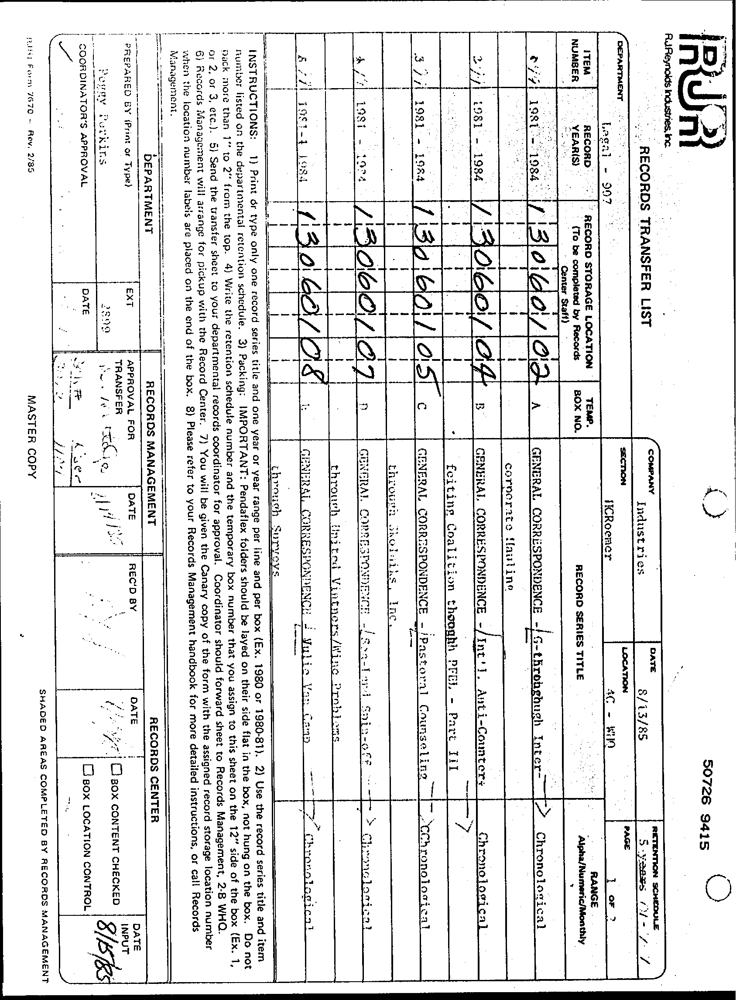 RJR
RJReynolds Industries, Inc.
RECORDS TRANSFER LIST
50726 9415
COMPANY
Industries
DATE
8/13/85
RETENTION SCHEDULE
5 years
DEPARTMENT
Legal - 907
SECTION
HCRoemer
LOCATION
4C - WHQ
PAGE
1 OF
ITEM NUMBER
RECORD YEAR(S)
RECORD STORAGE LOCATION (To be completed by Records Center Staff)
TEMP. BOX NO.
RECORD SERIES TITLE
RANGE Alpha/Numeric/Monthly
1981 - 1984 13060102 A GENERAL CORRESPONDENCE - G-throughough Inter- Chronological
corporate Hauling
1981 - 1984 13060104 B GENERAL CORRESPONDENCE - Int'l. Anti-Counter- Chronological
feiting Coalition thooghh PFEL - Part III
3 1981 - 1984 13060105 C GENERAL CORRESPONDENCE - Pastoral Counseling Chronological
through Skolniks, Inc.
1981 - 1984 13060107 D GENERAL CORRESPONDENCE - Sea-Land Spin-off Chronological
through United Vintners/Wine Problems
1981-1984 13060108 E GENERAL CORRESPONDENCE Julie Van Camp Chronological
through Surveys
INSTRUCTIONS: 1) Print or type only one record series title and one year or year range per line and per box (Ex. 1980 or 1980-81). 2) Use the record series title and item
number listed on the departmental retention schedule. 3) Packing: IMPORTANT: Pendaflex folders should be layed on their side flat in the box, not hung on the box. Do not
pack more than 1" to 2" from the top. 4) Write the retention schedule number and the temporary box number that you assign to this sheet on the 12" side of the box (Ex. 1,
or 2, or 3, etc.). 5) Send the transfer sheet to your departmental records coordinator for approval. Coordinator should forward sheet to Records Management, 2-B WHQ.
6) Records Management will arrange for pickup with the Record Center. 7) You will be given the Canary copy of the form with the assigned record storage location number
when the location number labels are placed on the end of the box. 8) Please refer to your Records Management handbook for more detailed instructions, or call Records
Management.
DEPARTMENT
RECORDS MANAGEMENT
RECORDS CENTER
PREPARED BY (Print or Type)
Peggy Perkins
EXT
APPROVAL FOR TRANSFER
DATE
REC'D BY
DATE
BOX CONTENT CHECKED
BOX LOCATION CONTROL
DATE INPUT
8/15/85
COORDINATOR'S APPROVAL
DATE
RJRI Form 7670 - Rev. 2/85
MASTER COPY
SHADED AREAS COMPLETED BY RECORDS MANAGEMENT